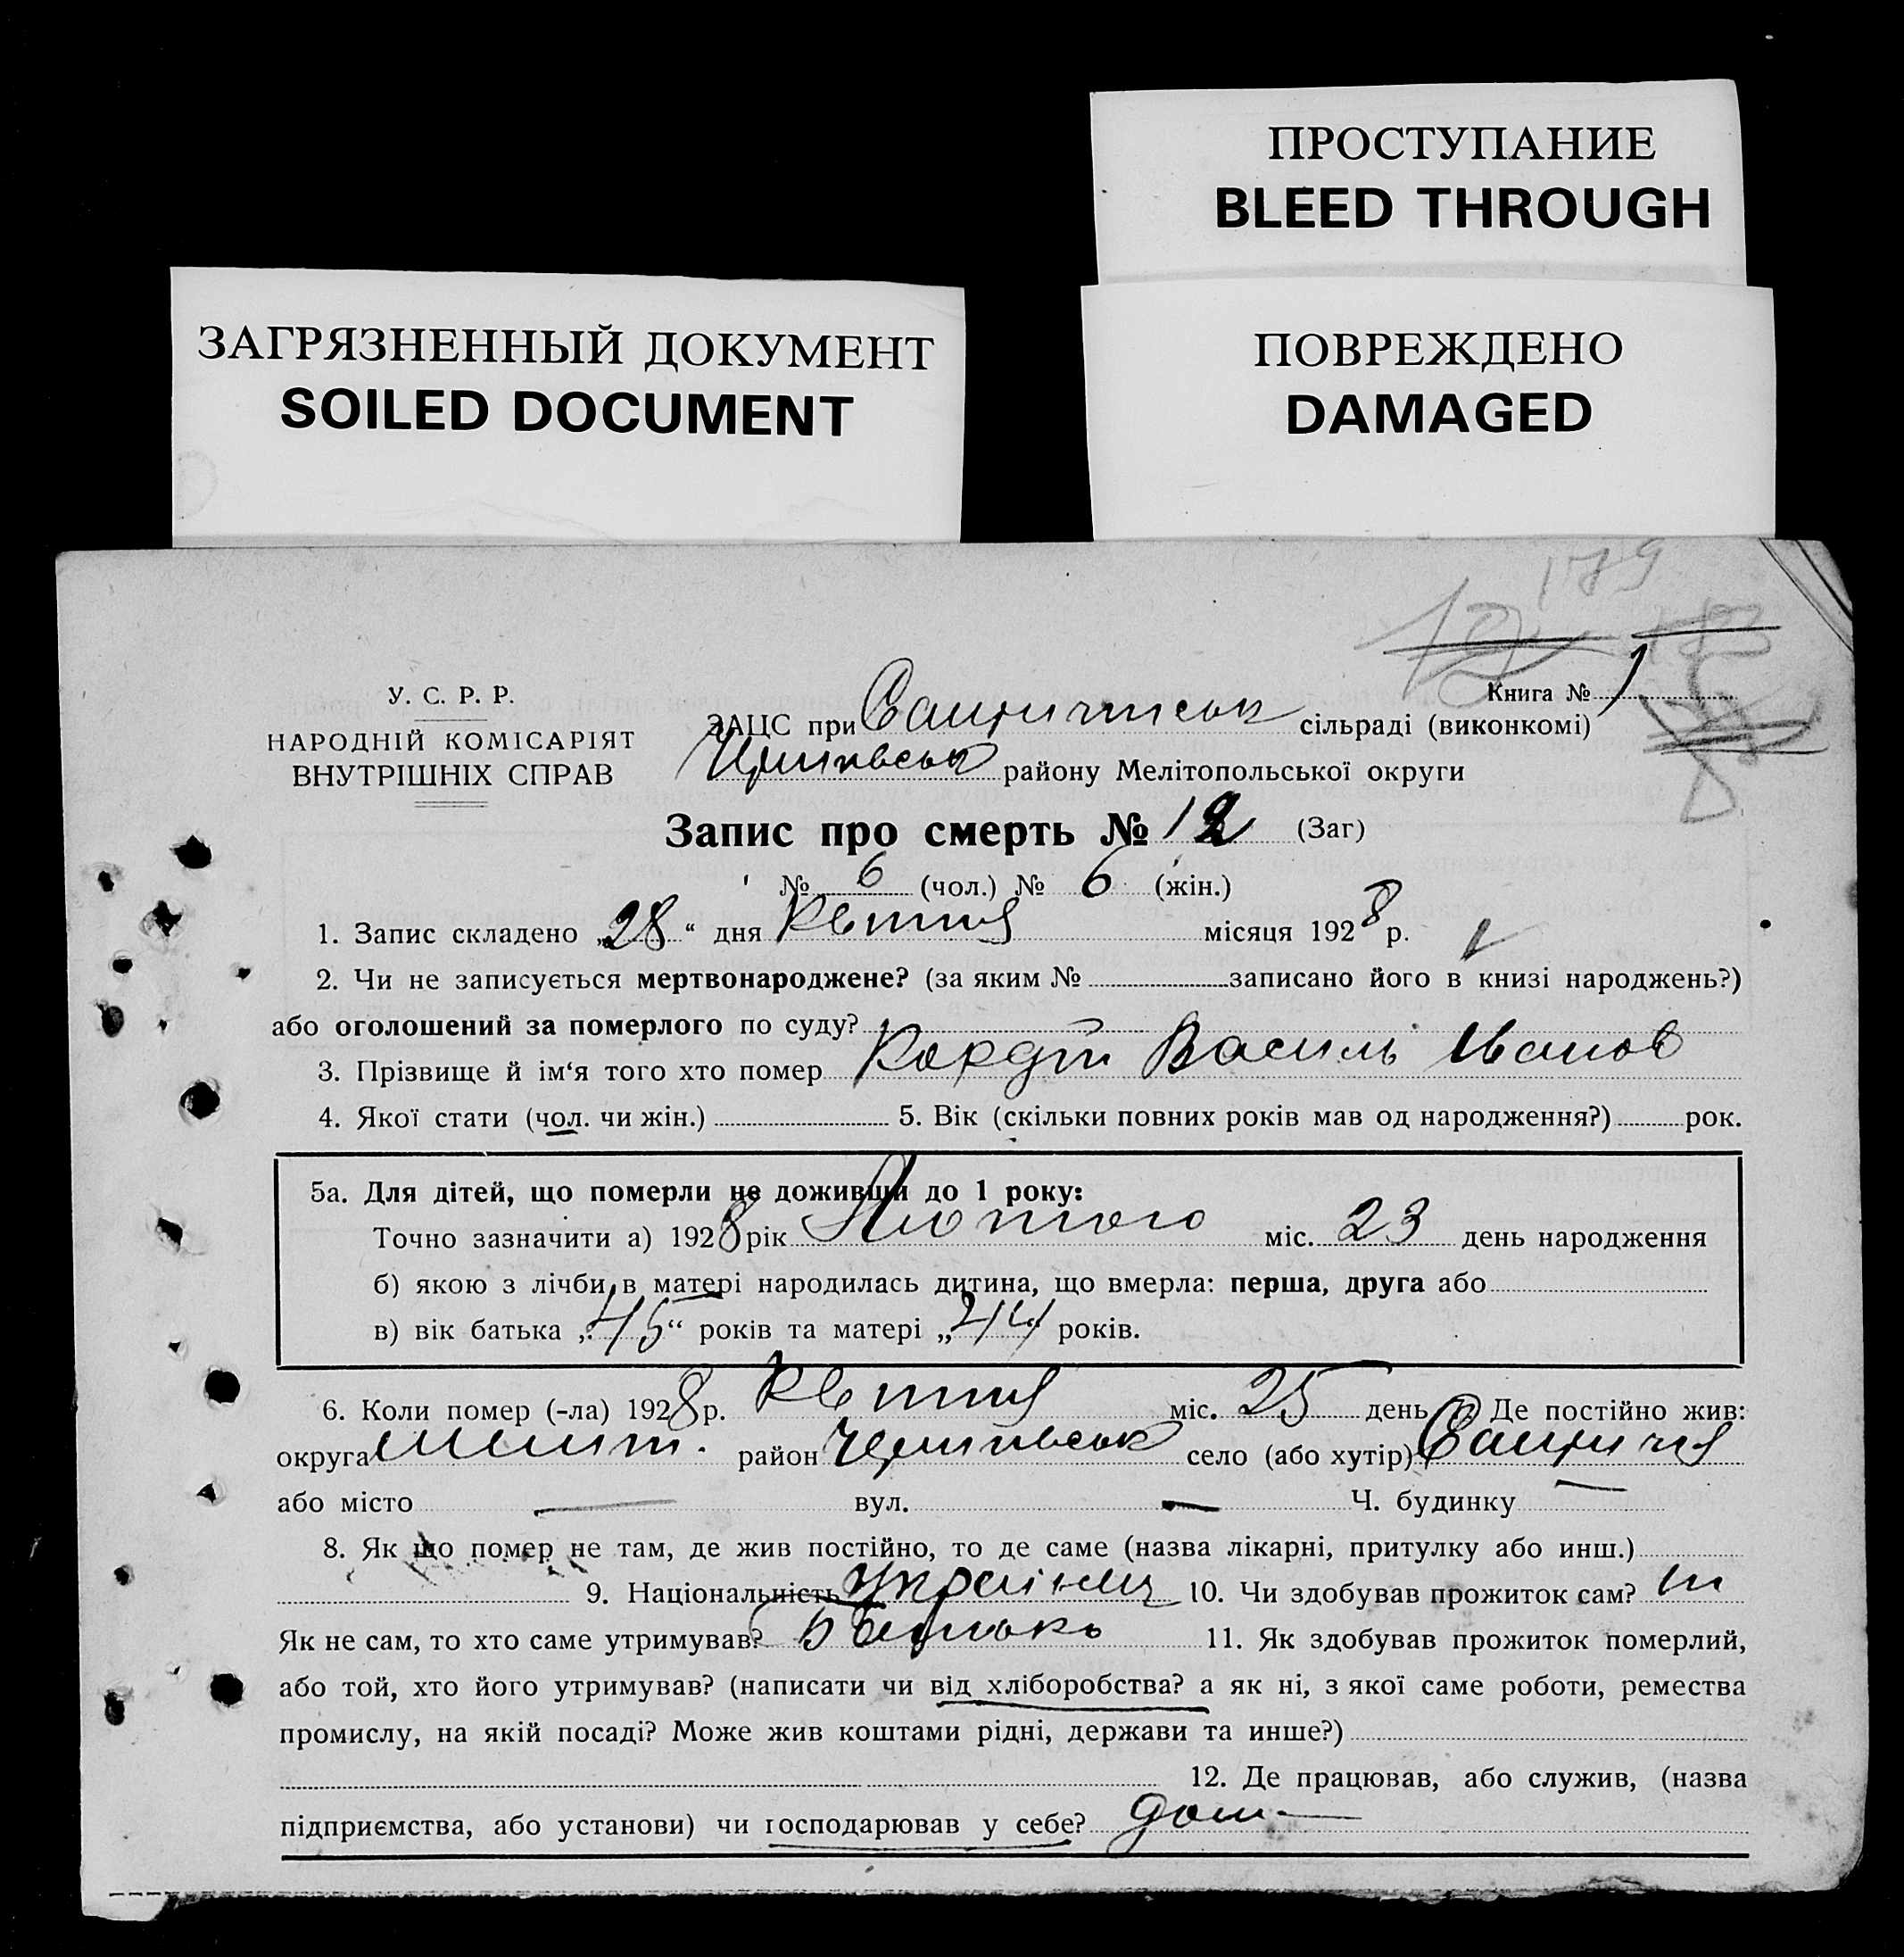 ПРОСТУПАНИЕ
BLEED THROUGH
ЗАГРЯЗНЕННЫЙ ДОКУМЕНТ
SOILED DOCUMENT
ПОВРЕЖДЕНО
DAMAGED
179
У. С. Р. Р.
НАРОДНІЙ КОМІСАРІЯТ
ВНУТРІШНІХ СПРАВ
Книга № 1
ЗАЦС при сільраді (виконкомі)
району Мелітопольської округи
Запис про смерть № 12 (Заг)
№ 6 (чол.) № 6 (жін.)
1. Запис складено „28“ дня Квітня місяця 1928 р.
2. Чи не записується мертвонароджене? (за яким № записано його в книзі народжень?)
або оголошений за померлого по суду?
3. Прізвище й ім‘я того хто помер Василь Іванов
4. Якої стати (чол. чи жін.) 5. Вік (скільки повних років мав од народження?) рок.
5а. Для дітей, що померли не доживши до 1 року:
Точно зазначити а) 1928 рік Лютого міс. 23 день народження
б) якою з лічби в матері народилась дитина, що вмерла: перша, друга або
в) вік батька „45“ років та матері „44“ років.
6. Коли помер (-ла) 1928 р. Квітня міс. 25 день 7. Де постійно жив:
округа Меліт. район село (або хутір)
або місто — вул. — Ч. будинку —
8. Як що помер не там, де жив постійно, то де саме (назва лікарні, притулку або инш.)
9. Національність Українец 10. Чи здобував прожиток сам? ні
Як не сам, то хто саме утримував? Батько 11. Як здобував прожиток померлий,
або той, хто його утримував? (написати чи від хліборобства? а як ні, з якої саме роботи, ремества
промислу, на якій посаді? Може жив коштами рідні, держави та инше?)
12. Де працював, або служив, (назва
підприємства, або установи) чи господарював у себе? дома —